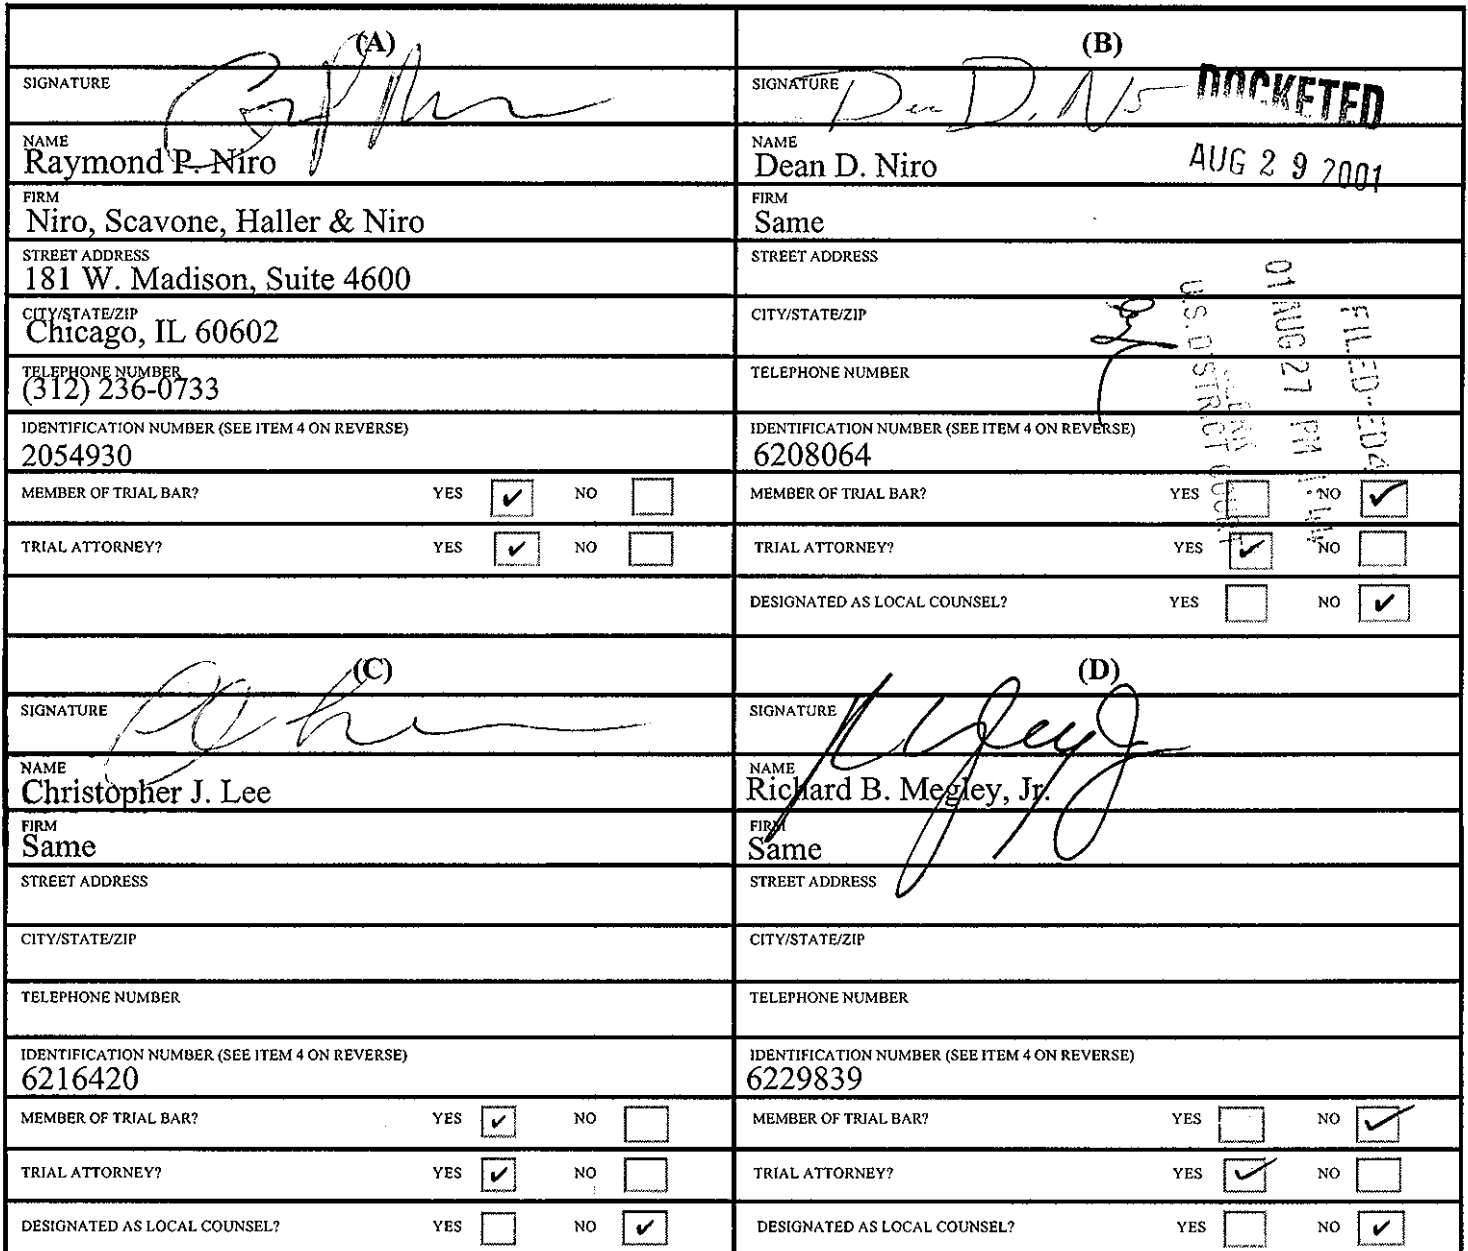 (A)
SIGNATURE
NAME
Raymond P. Niro
FIRM
Niro, Scavone, Haller & Niro
STREET ADDRESS
181 W. Madison, Suite 4600
CITY/STATE/ZIP
Chicago, IL 60602
TELEPHONE NUMBER
(312) 236-0733
IDENTIFICATION NUMBER (SEE ITEM 4 ON REVERSE)
2054930
MEMBER OF TRIAL BAR? YES ✔ NO
TRIAL ATTORNEY? YES ✔ NO
(B)
SIGNATURE
DOCKETED
NAME
Dean D. Niro
AUG 29 2001
FIRM
Same
STREET ADDRESS
CITY/STATE/ZIP
TELEPHONE NUMBER
FILED
01 AUG 27 PM
U.S. DISTRICT COURT
IDENTIFICATION NUMBER (SEE ITEM 4 ON REVERSE)
6208064
MEMBER OF TRIAL BAR? YES NO ✔
TRIAL ATTORNEY? YES ✔ NO
DESIGNATED AS LOCAL COUNSEL? YES NO ✔
(C)
SIGNATURE
NAME
Christopher J. Lee
FIRM
Same
STREET ADDRESS
CITY/STATE/ZIP
TELEPHONE NUMBER
IDENTIFICATION NUMBER (SEE ITEM 4 ON REVERSE)
6216420
MEMBER OF TRIAL BAR? YES ✔ NO
TRIAL ATTORNEY? YES ✔ NO
DESIGNATED AS LOCAL COUNSEL? YES NO ✔
(D)
SIGNATURE
NAME
Richard B. Megley, Jr.
FIRM
Same
STREET ADDRESS
CITY/STATE/ZIP
TELEPHONE NUMBER
IDENTIFICATION NUMBER (SEE ITEM 4 ON REVERSE)
6229839
MEMBER OF TRIAL BAR? YES NO ✔
TRIAL ATTORNEY? YES ✔ NO
DESIGNATED AS LOCAL COUNSEL? YES NO ✔